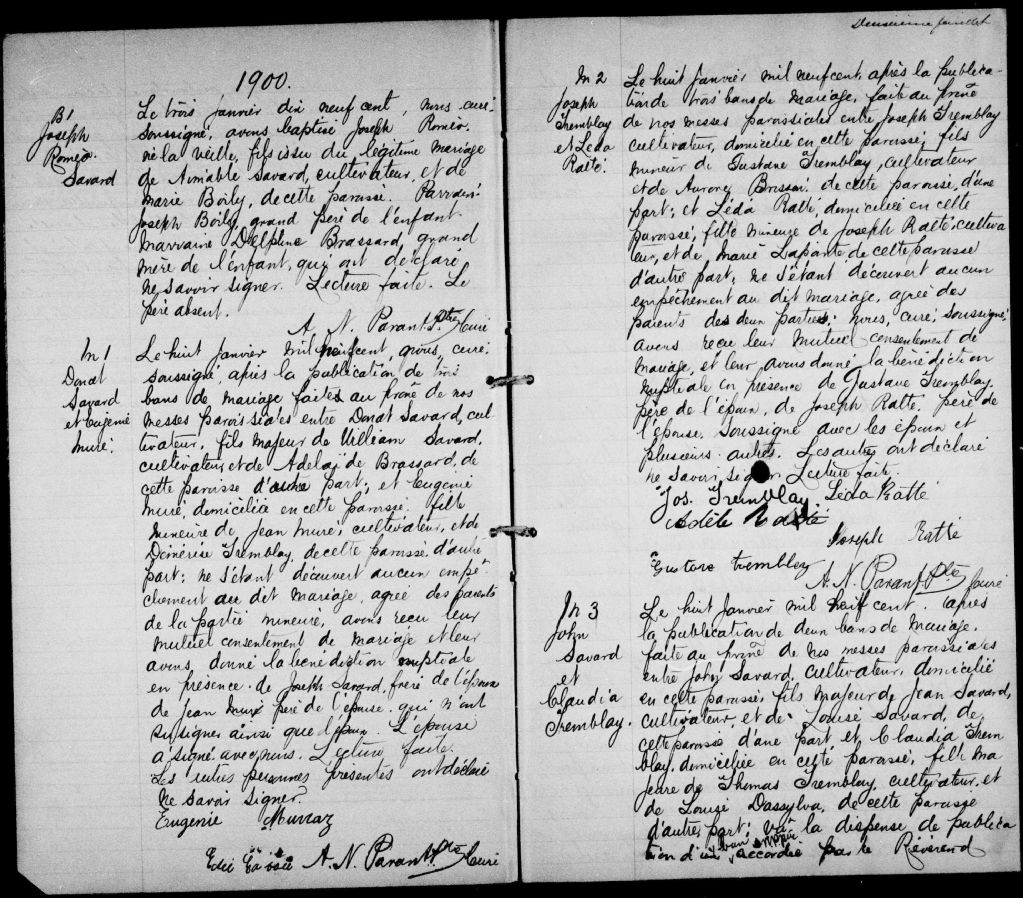 1900.
B1
Joseph
Roméo
Savard
Le trois janvier dix neuf cent, nous curé
soussigné, avons baptisé Joseph Roméo
né la veille, fils issu du légitime mariage
de Aimable Savard, cultivateur, et de
Marie Boily, de cette paroisse. Parrain
Joseph Boily, grand père de l'enfant
marraine Delphine Brassard, grand
mère de l'enfant, qui ont déclaré
ne savoir signer. Lecture faite. Le
père absent.
A. N. Parant Ptre Curé
M 1
Donat
Savard
et Eugénie
Muré.
Le huit Janvier mil neuf cent, nous, curé
soussigné, après la publication de trois
bans de mariage faites au prône de nos
messes paroissiales entre Donat Savard, cul-
tivateur, fils majeur de William Savard,
cultivateur, et de Adelaïde Brassard, de
cette paroisse d'autre part; et Eugénie
Muré, domiciliée en cette paroisse, fille
mineure de Jean Muré, cultivateur, et de
Démérise Tremblay, de cette paroisse d'autre
part; ne s'étant découvert aucun empê-
chement au dit mariage, agréé des parents
de la partie mineure, avons reçu leur
mutuel consentement de mariage et leur
avons donné la bénédiction nuptiale
en présence de Joseph Savard, frère de l'époux
de Jean Muré père de l'épouse qui n'ont
su signer ainsi que l'époux. L'épouse
a signé avec nous. Lecture faite.
Les autres personnes présentes ont déclaré
ne savoir signer.
Eugenie Murray
A. N. Parant Ptre Curé
Deuxième feuillet
M 2
Joseph
Tremblay
et Léda
Ratté.
Le huit Janvier mil neuf cent, après la publica-
tion de trois bans de mariage, faite au prône
de nos messes paroissiales entre Joseph Tremblay
cultivateur, domicilié en cette paroisse, fils
mineur de Gustave Tremblay, cultivateur
et de Aurore Brassard de cette paroisse, d'une
part; et Léda Ratté, domiciliée en cette
paroisse, fille mineure de Joseph Ratté, cultiva
teur, et de Marie Lapointe de cette paroisse
d'autre part; ne s'étant découvert aucun
empêchement au dit mariage, agréé des
parents des deux parties; nous, curé, soussigné,
avons reçu leur mutuel consentement de
mariage, et leur avons donné la bénédiction
nuptiale en présence de Gustave Tremblay,
père de l'époux, de Joseph Ratté, père de
l'épouse, soussigné avec les époux et
plusieurs autres. Les autres ont déclaré
ne savoir signer. Lecture faite.
Jos. Tremblay Léda Ratté
Adèle Ratté
Joseph Ratté
Gustave Tremblay
A. N. Parant Ptre Curé
M 3
John
Savard
et
Claudia
Tremblay.
Le huit Janvier mil neuf cent, après
la publication de deux bans de mariage,
faite au prône de nos messes paroissiales
entre John Savard, cultivateur, domicilié
en cette paroisse, fils majeur de Jean Savard,
cultivateur, et de Louise Savard, de
cette paroisse d'une part et Claudia Trem
blay, domiciliée en cette paroisse, fille ma
jeure de Thomas Tremblay, cultivateur, et
de Louise Dassylva, de cette paroisse
d'autre part; vu la dispense de publica
tion d'un ban accordée par le Révérend